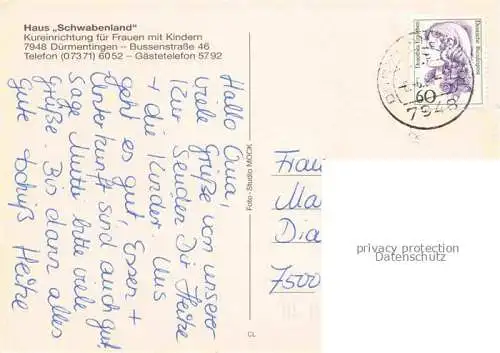 Haus „Schwabenland"
Kureinrichtung für Frauen mit Kindern
7948 Dürmentingen – Bussenstraße 46
Telefon (07371) 6052 – Gästetelefon 5792
Hallo Oma,
viele Grüße von unserer
Kur senden Dir Heike
+ die Kinder. Uns
geht es gut, Essen +
Unterkunft sind auch gut.
Sage Mutti bitte viele
Grüße. Bis dann alles
Gute tschüß Heike
Foto-Studio MOCK
CL
Deutsche Bundespost
60
7948
Frau
Ma
Dia
7500
privacy protection
Datenschutz